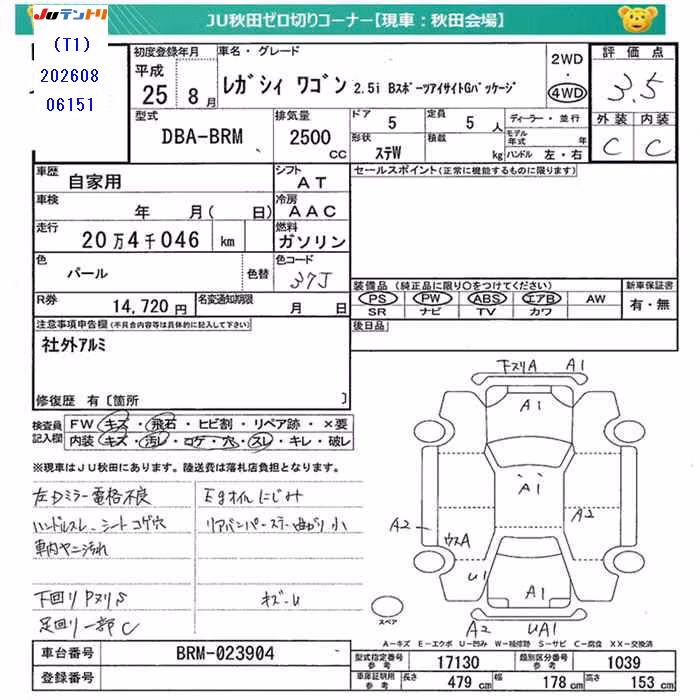 JUテントリ
JU秋田ゼロ切りコーナー【現車：秋田会場】
(T1)
202608
06151
初度登録年月
平成
25年 8月
車名・グレード
レガシィ ワゴン 2.5i BスポーツアイサイトGパッケージ
2WD
・
4WD
評価点
3.5
外装 内装
C C
型式
DBA-BRM
排気量
2500
CC
ドア
5
定員
5人
形状
ステW
積載
kg
ディーラー・並行
モデル年式 年
ハンドル 左・右
車歴
自家用
シフト
AT
車検
年 月( 日)
冷房
AAC
走行
20万4千046 km
燃料
ガソリン
色
パール
色替
色コード
37J
R券
14,720円
名変通知期限
月 日
セールスポイント(正常に機能するものに限ります)
装備品(純正品に限り○をつけてください)
PS PW ABS エアB AW
SR ナビ TV カワ
新車保証書
有・無
後日品
注意事項申告欄(不具合内容等は具体的に記入して下さい)
社外アルミ
修復歴 有〔箇所 〕
検査員記入欄
FW キズ・飛石・ヒビ割・リペア跡・×要
内装 キズ・汚レ・コゲ・穴・スレ・キレ・破レ
※現車はJU秋田にあります。陸送費は落札店負担となります。
左Dミラー電格不良
Egオイルにじみ
ハンドルスレ、シートコゲ穴
リアバンパーステー曲がり小
車内ヤニ汚れ
下回りPヌリS
キズ－U
足回り一部C
下スリA A1
A1
A1
A2
A2
ウスA
U1
A1
A2 UA1
スペア
A－キズ E－エクボ U－凹み W－補修跡 S－サビ C－腐食 XX－交換済
車台番号
BRM-023904
登録番号
型式指定番号 参考
17130
類別区分番号 参考
1039
車庫証明用 参考
長さ 479cm
幅 178cm
高さ 153cm